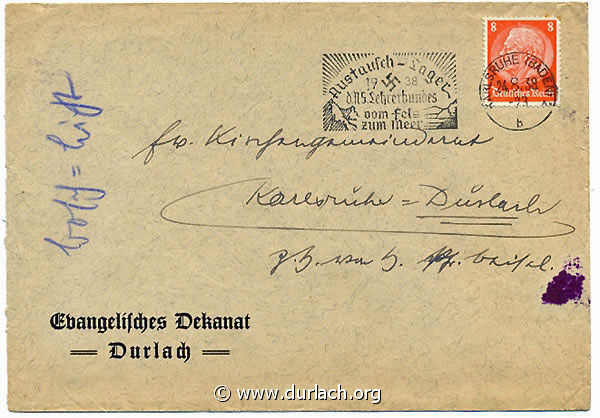 Austausch-Lager
1938
d.NS.Lehrerbundes
vom Fels
zum Meer
8 8
Deutsches Reich
KARLSRUHE (BADEN)
24.8.38
b
Ev. Kirchengemeinderat
Karlsruhe=Durlach
z. H. von H. Pfr. Beisel.
Evangelisches Dekanat
Durlach
© www.durlach.org